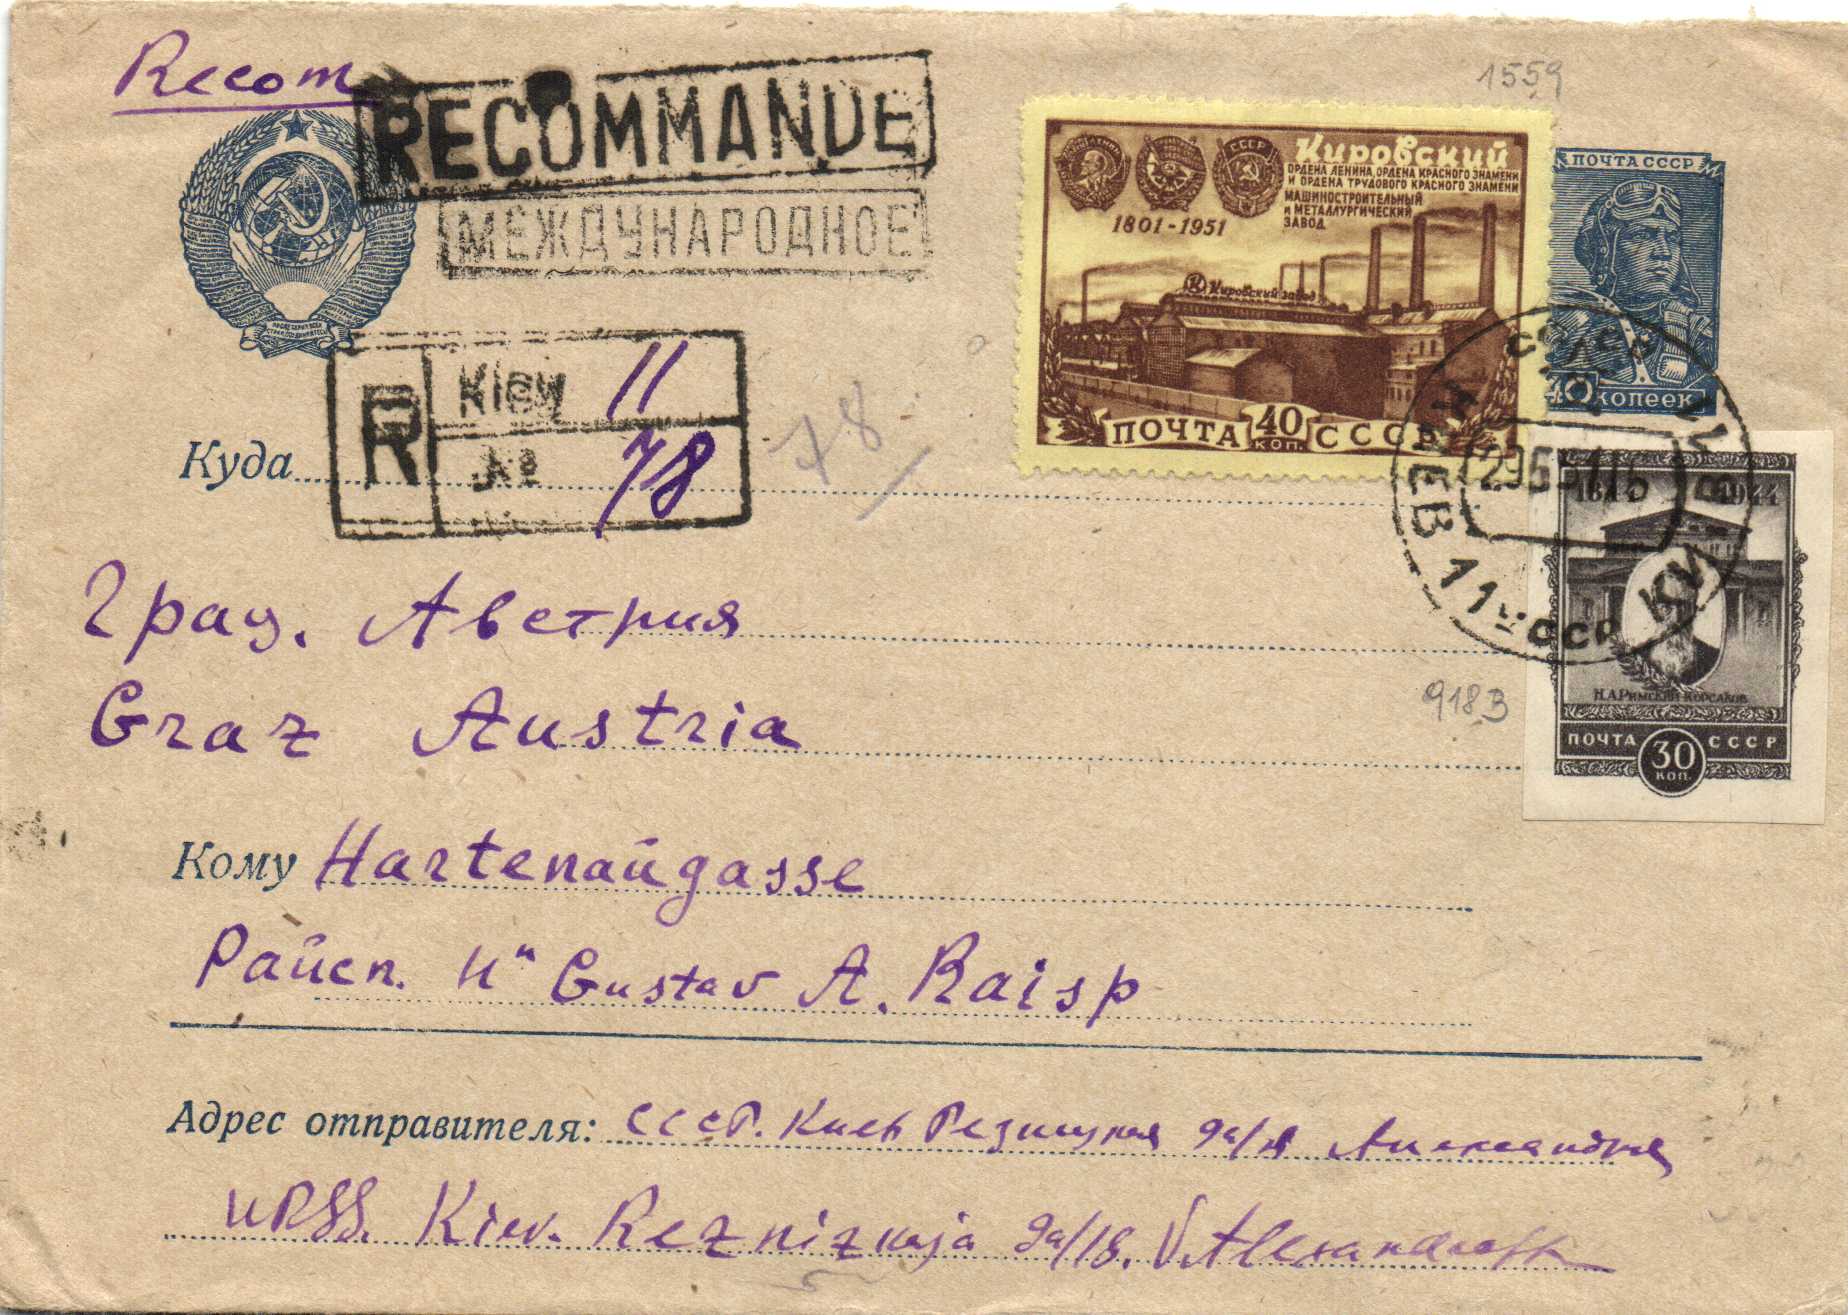 Recom
RECOMMANDE
МЕЖДУНАРОДНОЕ
1559
Кировский
ОРДЕНА ЛЕНИНА, ОРДЕНА КРАСНОГО ЗНАМЕНИ
И ОРДЕНА ТРУДОВОГО КРАСНОГО ЗНАМЕНИ
МАШИНОСТРОИТЕЛЬНЫЙ
и МЕТАЛЛУРГИЧЕСКИЙ
ЗАВОД
СССР
1801-1951
К Кировский завод
ПОЧТА 40 КОП. СССР
ПОЧТА СССР
40 копеек
R Kiew 11
№ 78
78
Куда
СССР КИЕВ 11 УССР КИЇВ
1844 1944
Н.А.Римский-Корсаков
ПОЧТА 30 КОП. СССР
9183
Грац. Австрия
Graz Austria
Кому Hartenaugasse
Райсп. Н" Gustav A. Raisp
Адрес отправителя: СССР. Киев Резницкая 9а/18
URSS. Kiev. Reznizkaja 9a/18. V. Alexandroff